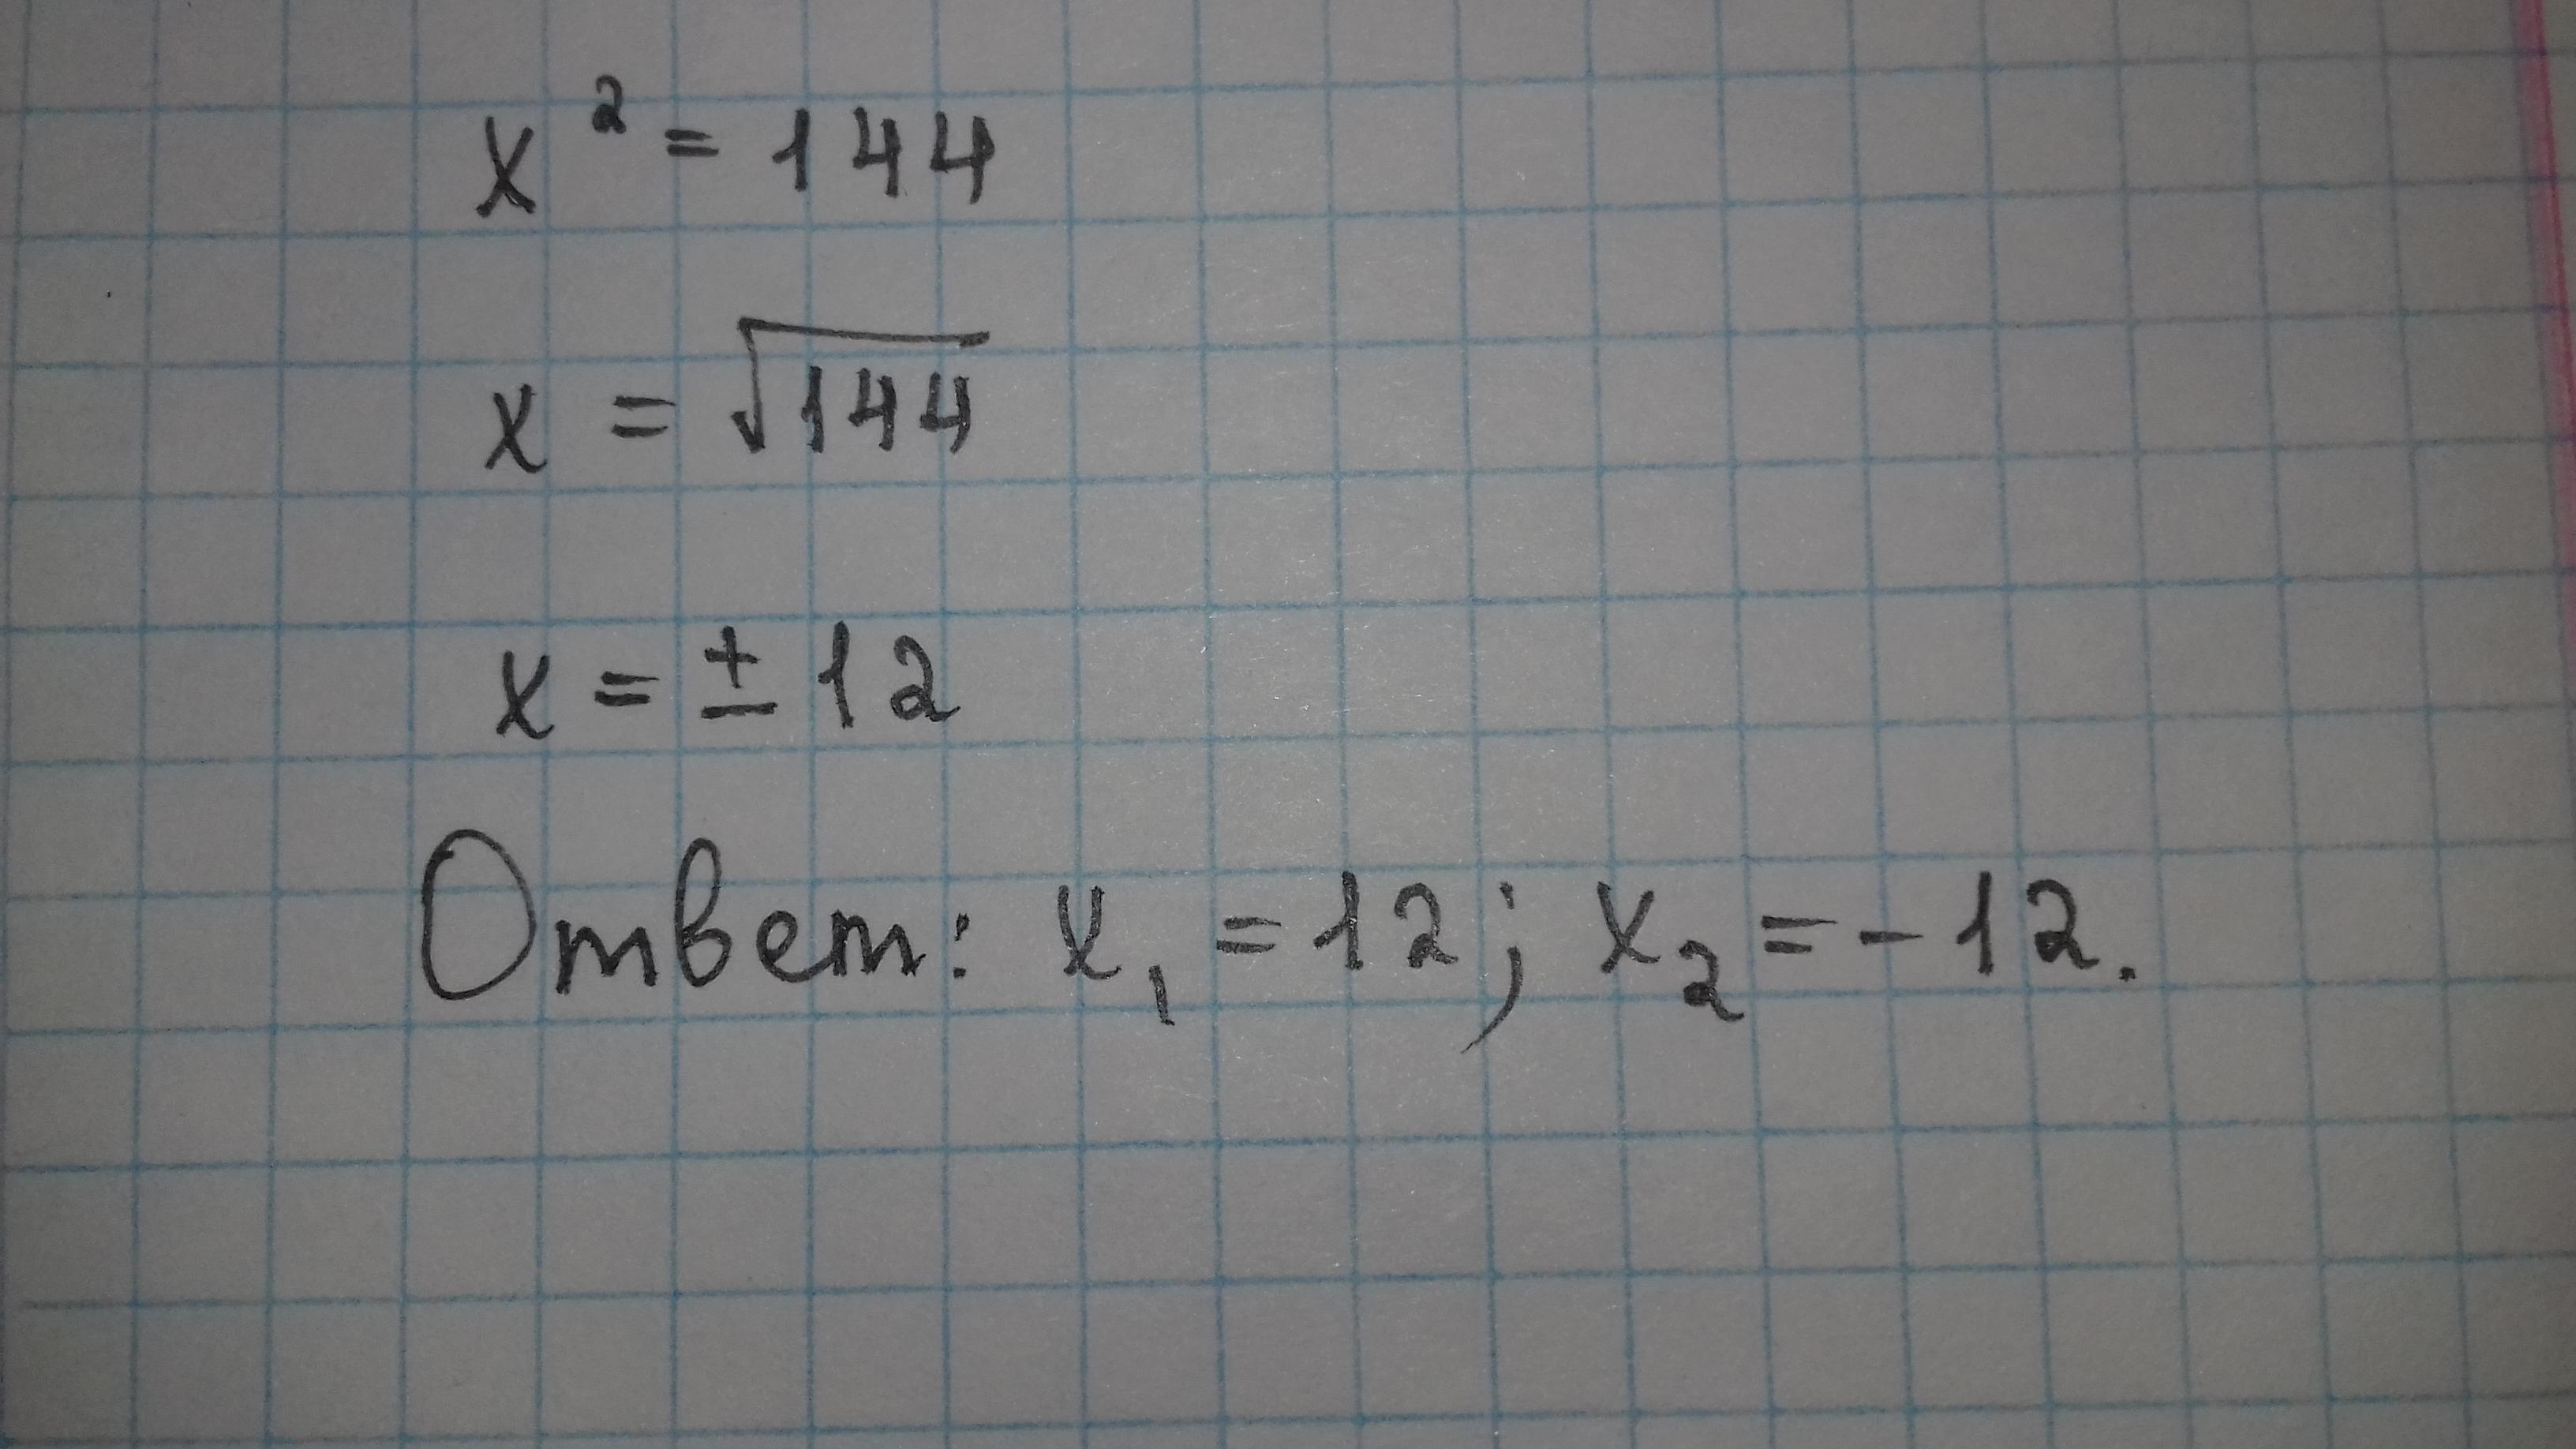 x² = 144
x = √144
x = ± 12
Ответ: x₁ = 12; x₂ = -12.